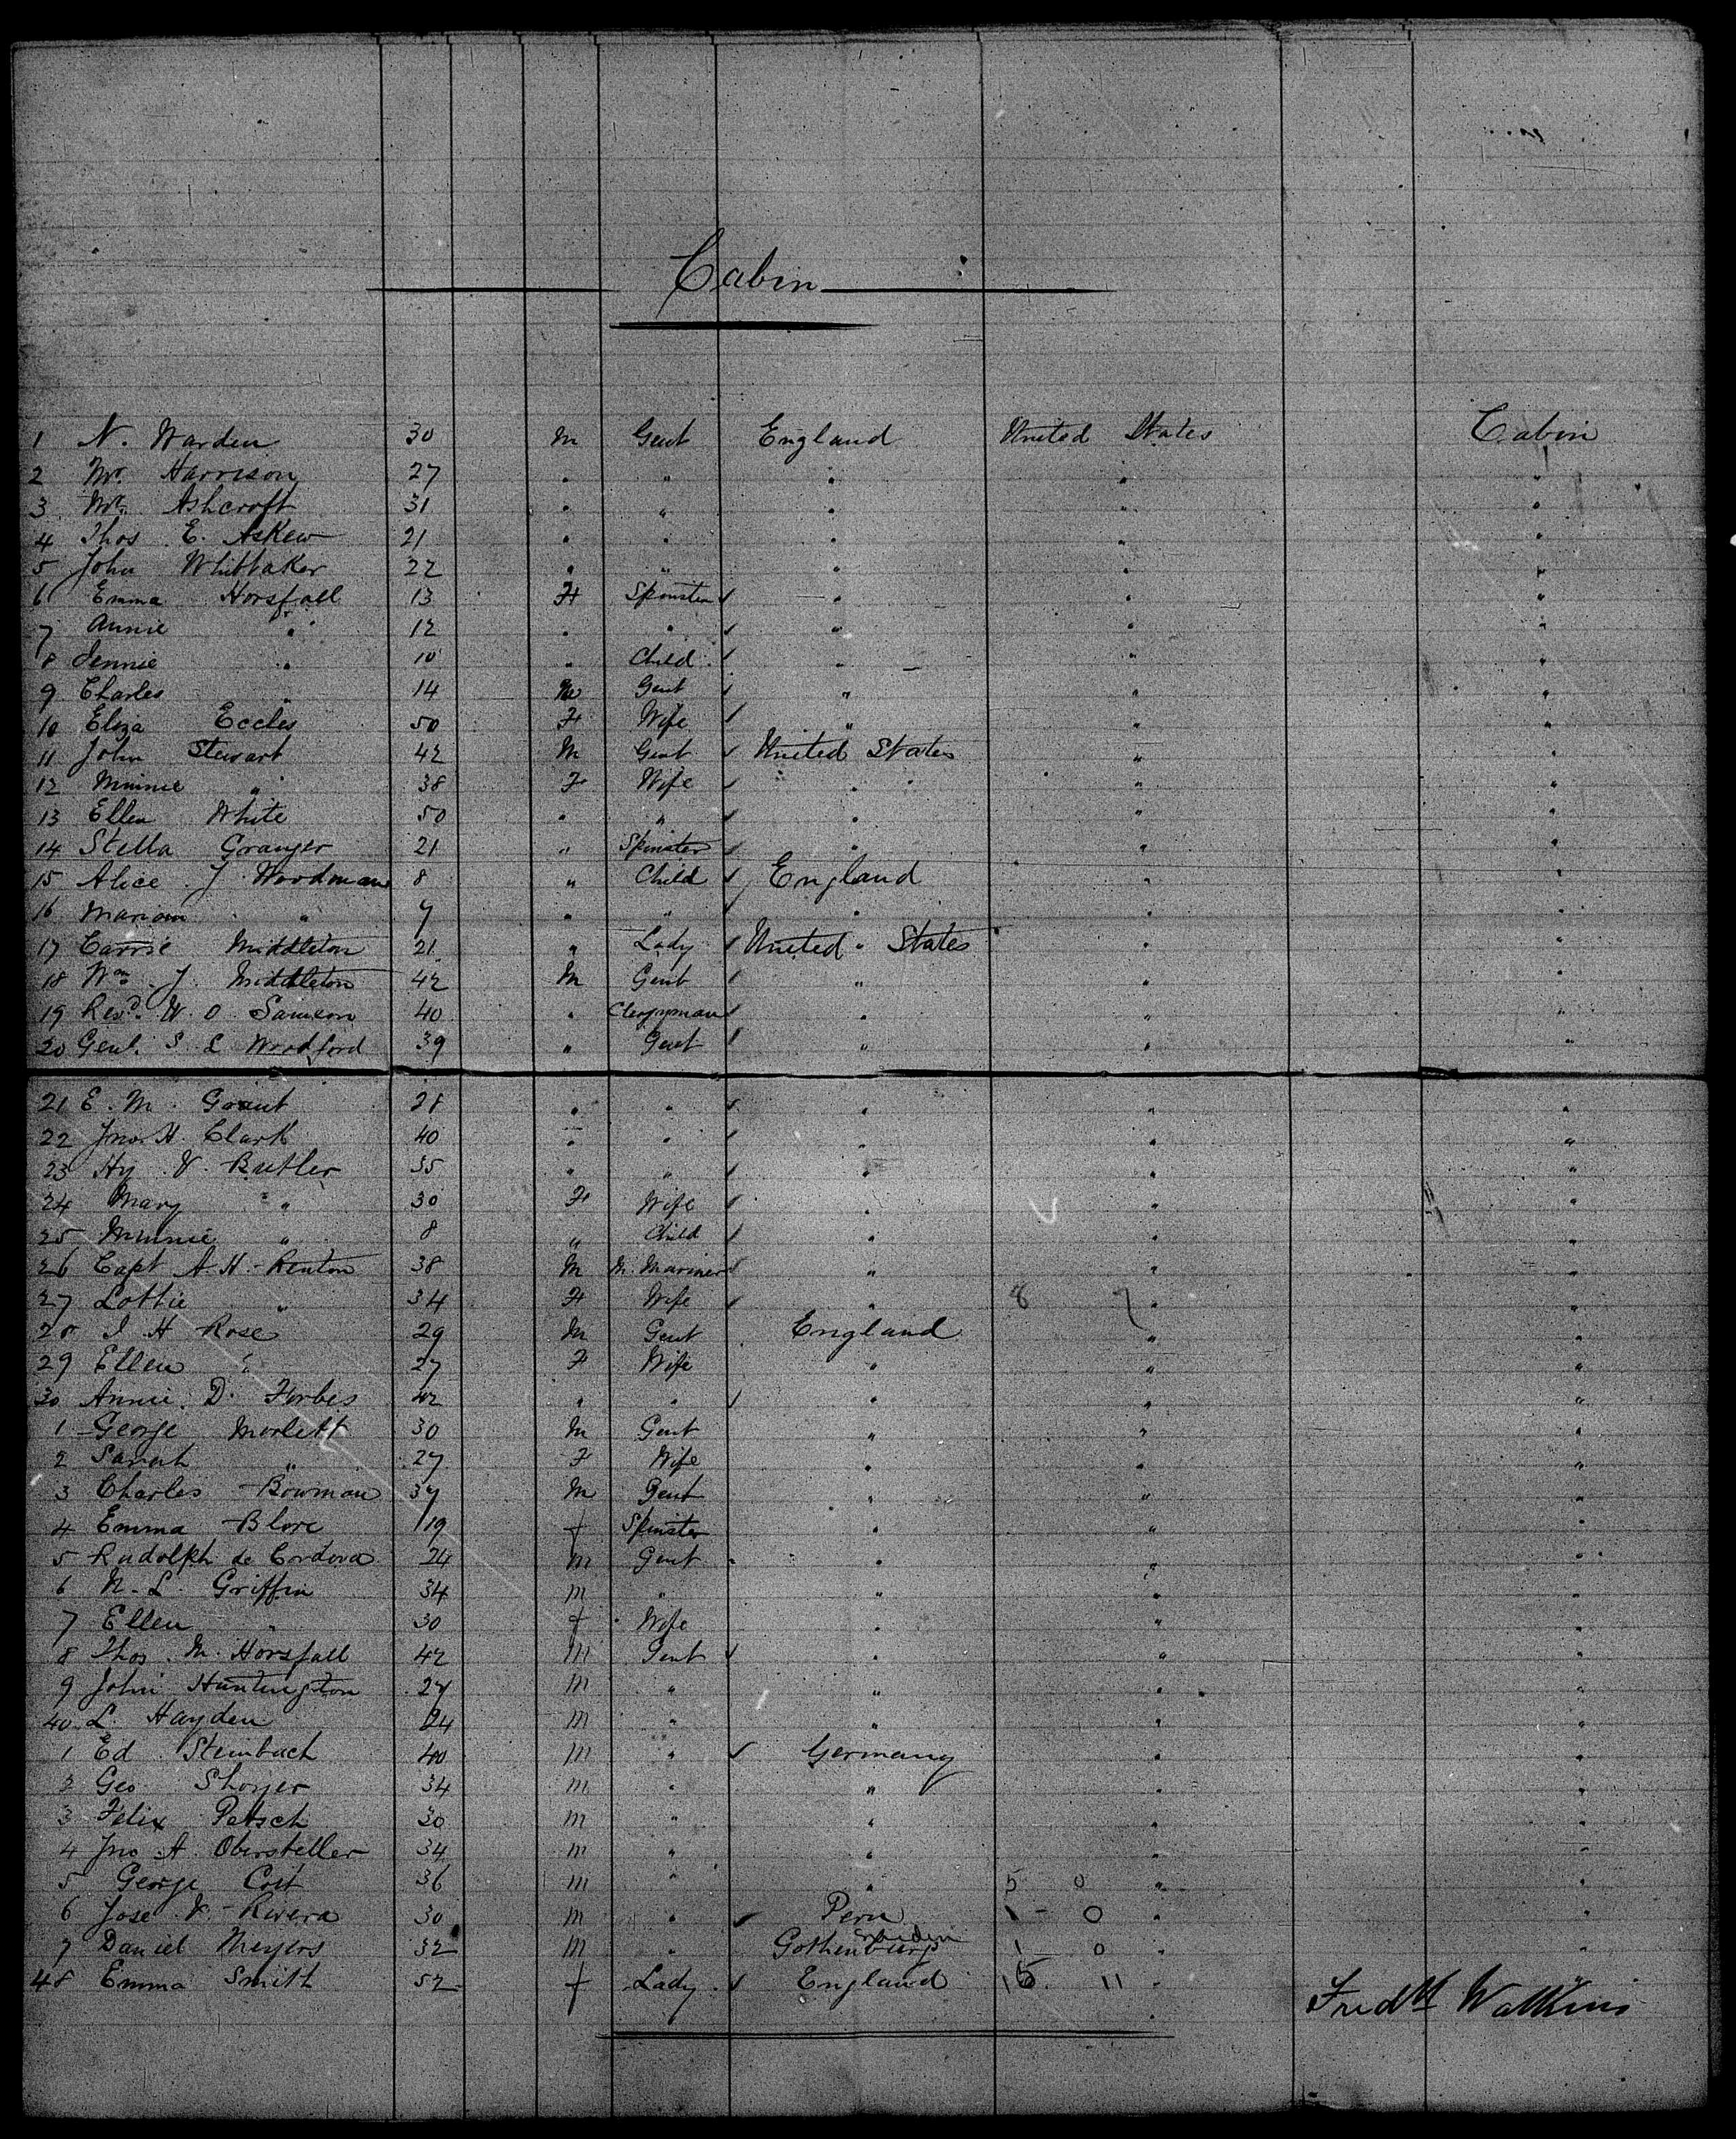 Cabin
1 N. Warden 30 M Gent England United States Cabin
2 Mr. Harrison 27 " " " " "
3 Mr. Ashcroft 31 " " " " "
4 Thos E. Askew 21 " " " " "
5 John Whittaker 22 " " " " "
6 Emma Horsfall 13 F Spinster " " "
7 Annie " 12 " " " " "
8 Jennie " 10 " Child " " "
9 Charles " 14 M Gent " " "
10 Eliza Eccles 50 F Wife " " "
11 John Stewart 42 M Gent United States " "
12 Minnie " 38 F Wife " " "
13 Ellen White 50 " " " " "
14 Stella Granger 21 " Spinster " " "
15 Alice J Woodman 8 " Child England " "
16 Mariam " 7 " " " " "
17 Carrie Middleton 21 " Lady United States " "
18 Wm J. Middleton 42 M Gent " " "
19 Revd. W. O. Samson 40 " Clergyman " " "
20 Genl. S. L Woodford 39 " Gent " " "
21 E. M. Grant 28 " " " " "
22 Jno. H. Clark 40 " " " " "
23 Hy V. Butler 35 " " " " "
24 Mary " 30 F Wife " " "
25 Minnie " 8 " Child " " "
26 Capt A. H. Renton 38 M M. Mariner " " "
27 Lottie " 34 F Wife " 8 7 " "
28 I H Rose 29 M Gent England " "
29 Ellen " 27 F Wife " " "
30 Annie D. Forbes 42 " " " " "
1 George Morlett 30 M Gent " " "
2 Sarah " 27 F Wife " " "
3 Charles Bowman 37 M Gent " " "
4 Emma Blore 19 f Spinster " " "
5 Rudolph de Cordova 24 m Gent " " "
6 N. L. Griffin 34 m " " " "
7 Ellen " 30 f Wife " " "
8 Thos. M. Horsfall 42 m Gent " " "
9 John Huntington 27 m " " " "
40 L. Hayden 24 m " " " "
1 Ed Steinbach 40 m " Germany " "
2 Geo. Shoyer 34 m " " " "
3 Felix Petsch 30 m " " " "
4 Jno A. Obersteller 34 m " " " "
5 George Coit 36 m " " 5 0 " "
6 Jose V. Rivera 30 m " Peru 1 - 0 " "
7 Daniel Meyers 32 m " Gothenburg 1 0 " "
48 Emma Smith 52 f Lady England 15 11 " "
Fredk Watkins